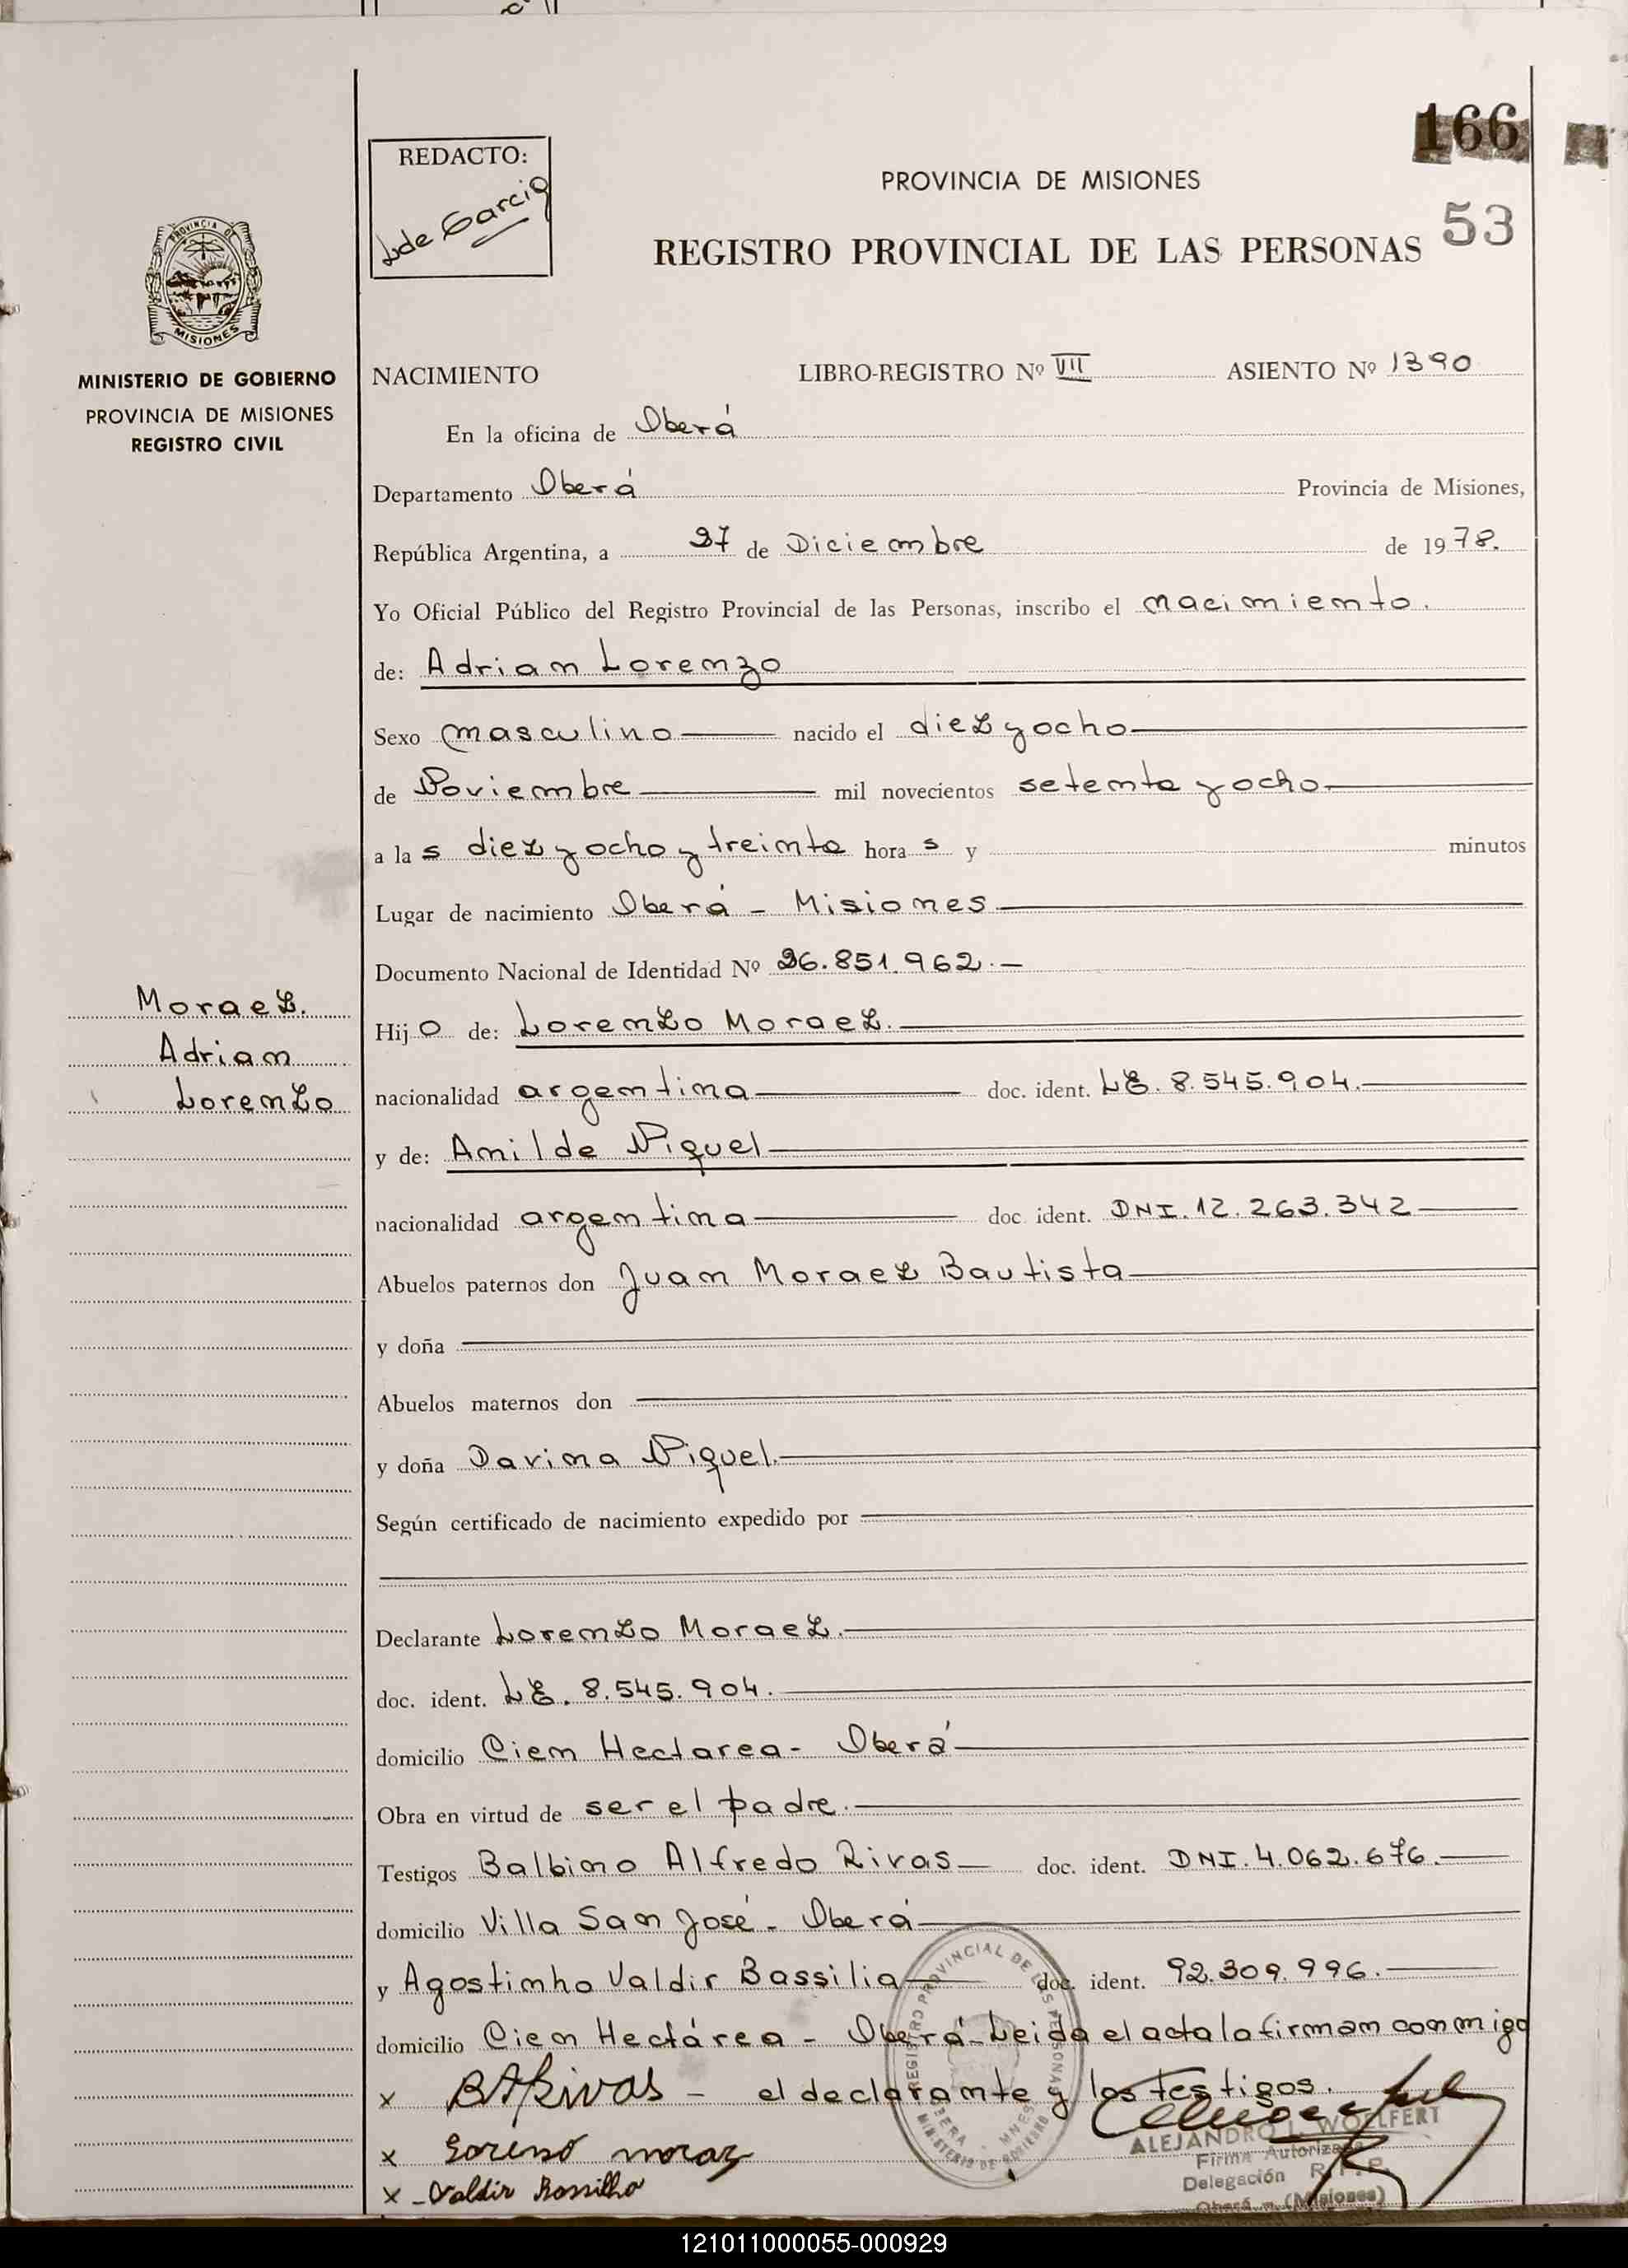 166
53
REDACTO:
L de Garcia
PROVINCIA DE MISIONES
REGISTRO PROVINCIAL DE LAS PERSONAS
PROVINCIA DE
MISIONES
MINISTERIO DE GOBIERNO
PROVINCIA DE MISIONES
REGISTRO CIVIL
NACIMIENTO LIBRO-REGISTRO Nº VII ASIENTO Nº 1390
En la oficina de Oberá
Departamento Oberá Provincia de Misiones,
República Argentina, a 27 de Diciembre de 1978.
Yo Oficial Público del Registro Provincial de las Personas, inscribo el nacimiento.
de: Adrian Lorenzo
Sexo masculino nacido el diez y ocho
de Noviembre mil novecientos setenta y ocho
a las diez y ocho y treinta horas y minutos
Lugar de nacimiento Oberá - Misiones
Documento Nacional de Identidad Nº 26.851.962.-
Moraez.
Adrian
Lorenzo
Hijo de: Lorenzo Moraez.
nacionalidad argentina doc. ident. LE. 8.545.904.
y de: Amilde Niquel
nacionalidad argentina doc. ident. DNI. 12.263.342
Abuelos paternos don Juan Moraez Bautista
y doña
Abuelos maternos don
y doña Davina Niquel.
Según certificado de nacimiento expedido por
Declarante Lorenzo Moraez.
doc. ident. LE. 8.545.904.
domicilio Cien Hectarea - Oberá
Obra en virtud de ser el padre.
Testigos Balbino Alfredo Rivas doc. ident. DNI. 4.062.676.
domicilio Villa San José - Oberá
y Agostinho Valdir Bassilia doc. ident. 92.309.996.
domicilio Cien Hectárea - Oberá - Leida el acta la firman conmigo
x BARivas - el declarante y los testigos.
x Lorenso moraz
x - Valdir Bassilha
REGISTRO PROVINCIAL DE LAS PERSONAS
MINISTERIO DE GOBIERNO
OBERA - MNES
ALEJANDRO L. WOELFERT
Firma Autorizada
Delegación R.P.P.
Oberá - (Misiones)
121011000055-000929